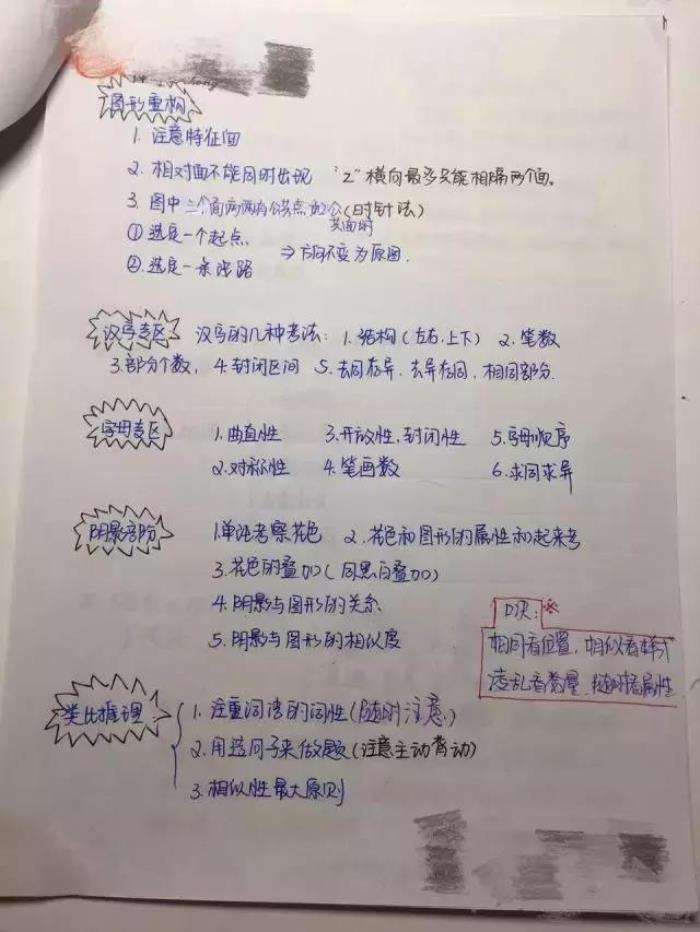 图形重构
1. 注意特征面
2. 相对面不能同时出现 “Z”横向最多只能相隔两个面。
3. 图中三个面两两有公共点的公共面时(时针法)
① 选定一个起点
⇒方向不变为原图.
②. 选定一条路
汉字专区 汉字的几种考法: 1. 结构(左右.上下) 2. 笔数
3. 部分个数, 4. 封闭区间 5. 去同存异. 去异存同. 相同部分.
字母专区 1. 曲直性 3. 开放性, 封闭性 5. 字母顺序
2. 对称性 4. 笔画数 6. 求同求异
阴影部份 1. 单独考察花色 2. 花色和图形的属性和起来考
3. 花色的叠加(同黑白叠加)
4. 阴影与图形的关系
5. 阴影与图形的相似度
口诀: ※
相同看位置, 相似看样式
凌乱看数量, 随时看属性
类比推理
1. 注重词语的词性(随时注意.)
2. 用造句子来做题(注意主动背动)
3. 相似性最大原则